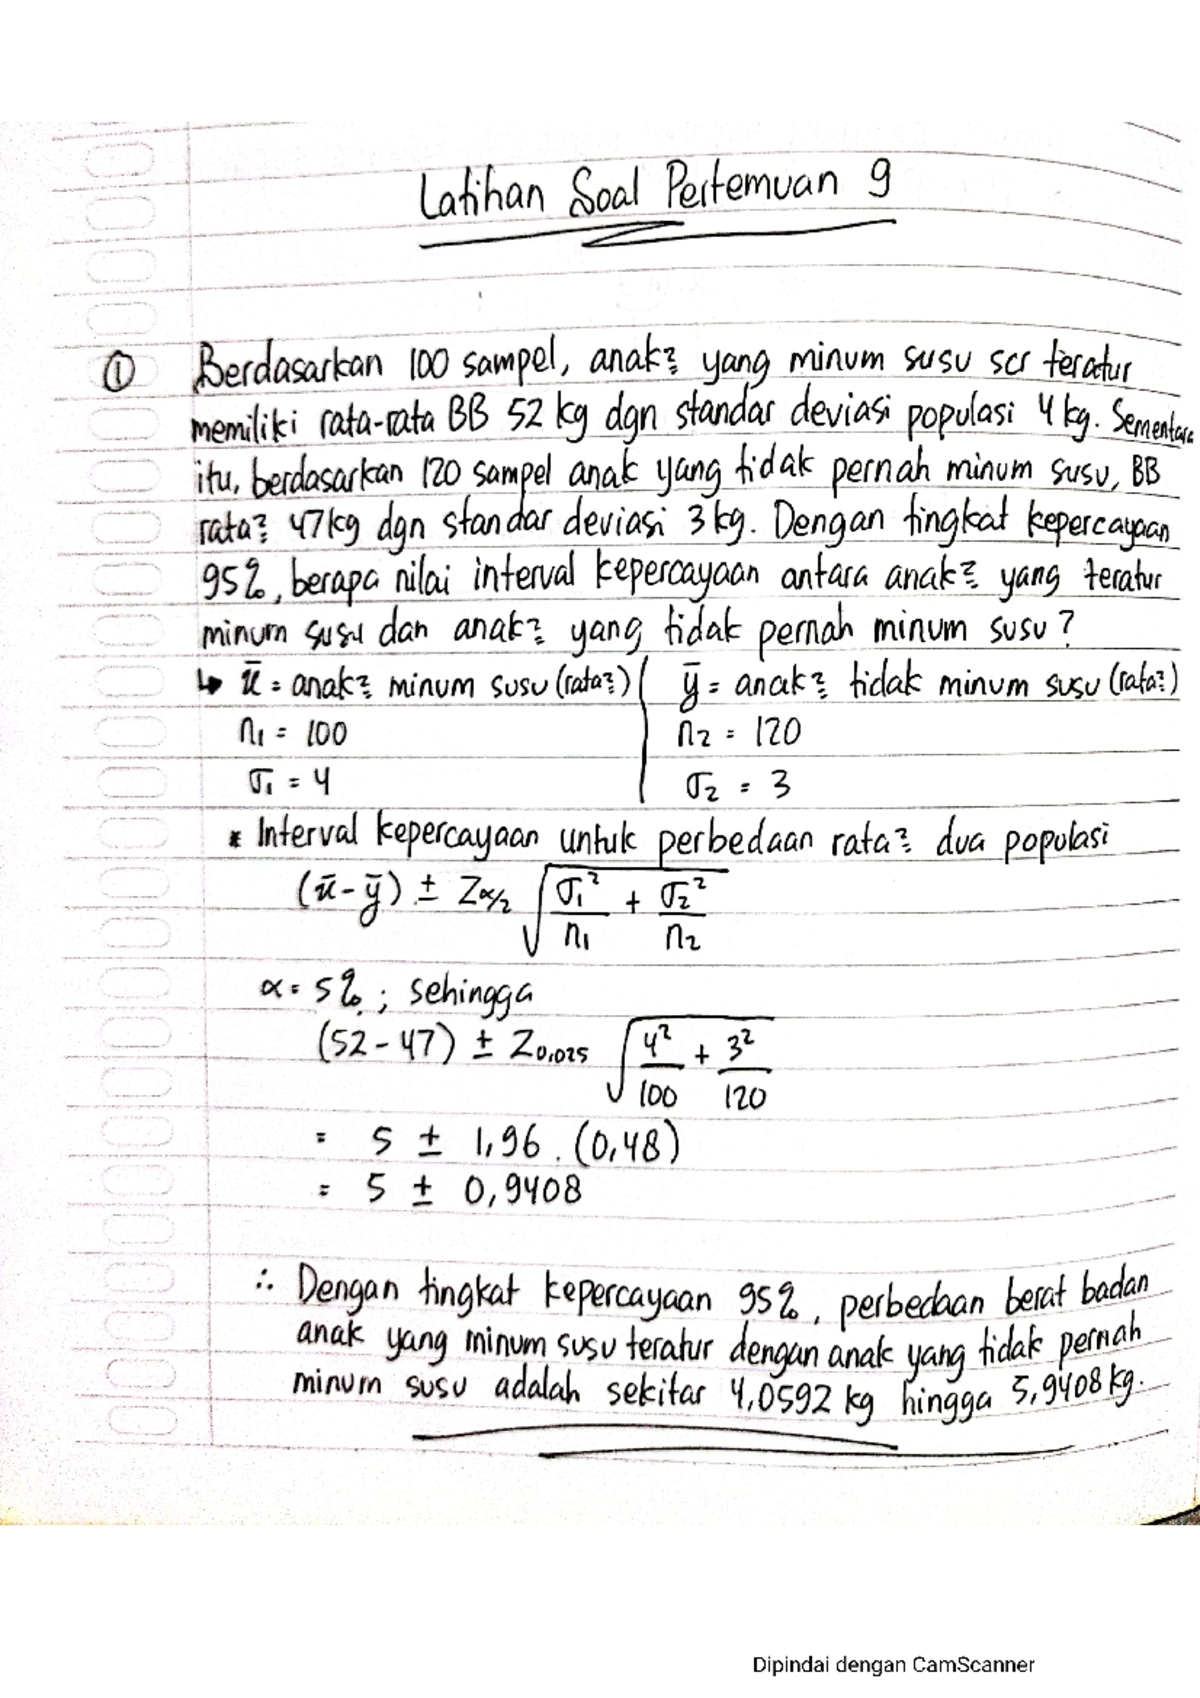 Latihan Soal Pertemuan 9
① Berdasarkan 100 sampel, anak2 yang minum susu scr teratur
memiliki rata-rata BB 52 kg dgn standar deviasi populasi 4 kg. Sementara
itu, berdasarkan 120 sampel anak yang tidak pernah minum susu, BB
rata2 47kg dgn standar deviasi 3 kg. Dengan tingkat kepercayaan
95%, berapa nilai interval kepercayaan antara anak2 yang teratur
minum susu dan anak2 yang tidak pernah minum susu?
↳ x̄ = anak2 minum susu (rata2) | ȳ = anak2 tidak minum susu (rata2)
n₁ = 100 | n₂ = 120
σ₁ = 4 | σ₂ = 3
* Interval kepercayaan untuk perbedaan rata2 dua populasi
(x̄ - ȳ) ± Zα/2 √(σ₁²/n₁ + σ₂²/n₂)
α = 5%; sehingga
(52 - 47) ± Z0,025 √(4²/100 + 3²/120)
= 5 ± 1,96 . (0,48)
= 5 ± 0,9408
∴ Dengan tingkat kepercayaan 95%, perbedaan berat badan
anak yang minum susu teratur dengan anak yang tidak pernah
minum susu adalah sekitar 4,0592 kg hingga 5,9408 kg.
Dipindai dengan CamScanner